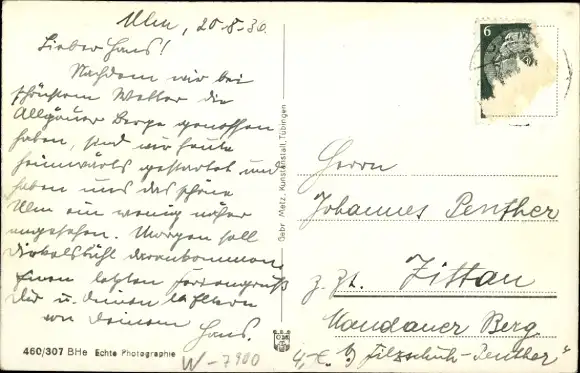 Ulm, 20-8-30.
Lieber Hans!
Nachdem wir bei
schönstem Wetter die
Allgäuer Berge genossen
haben, sind wir heute
heimwärts gestartet und
haben uns das schöne
Ulm ein wenig näher
angesehen. Morgen soll
Dinkelsbühl drankommen.
Einen letzten Feriengruß
Dir u. deinen Eltern
von Deinem
Hans.
460/307 BHe Echte Photographie
W-7900
Gebr. Metz, Kunstanstalt, Tübingen
6
Herrn
Johannes Penther
z. Zt. Zittau
Mandauer Berg
"Filzschuh-Penther"